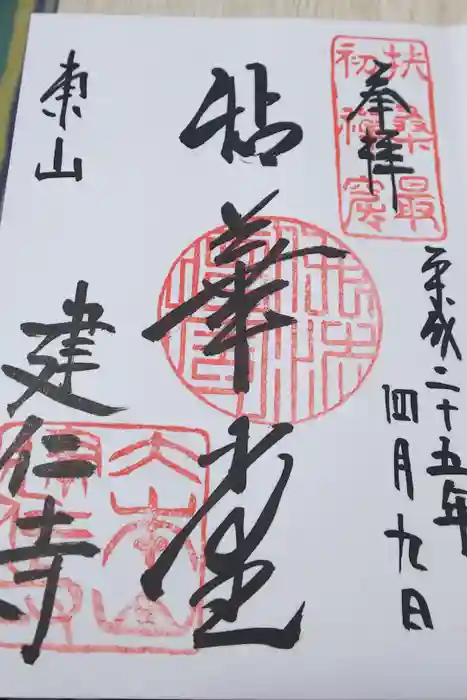 奉拝
扶桑最
初禅窟
平成二十五年
四月九日
拈華堂
東山
建仁寺